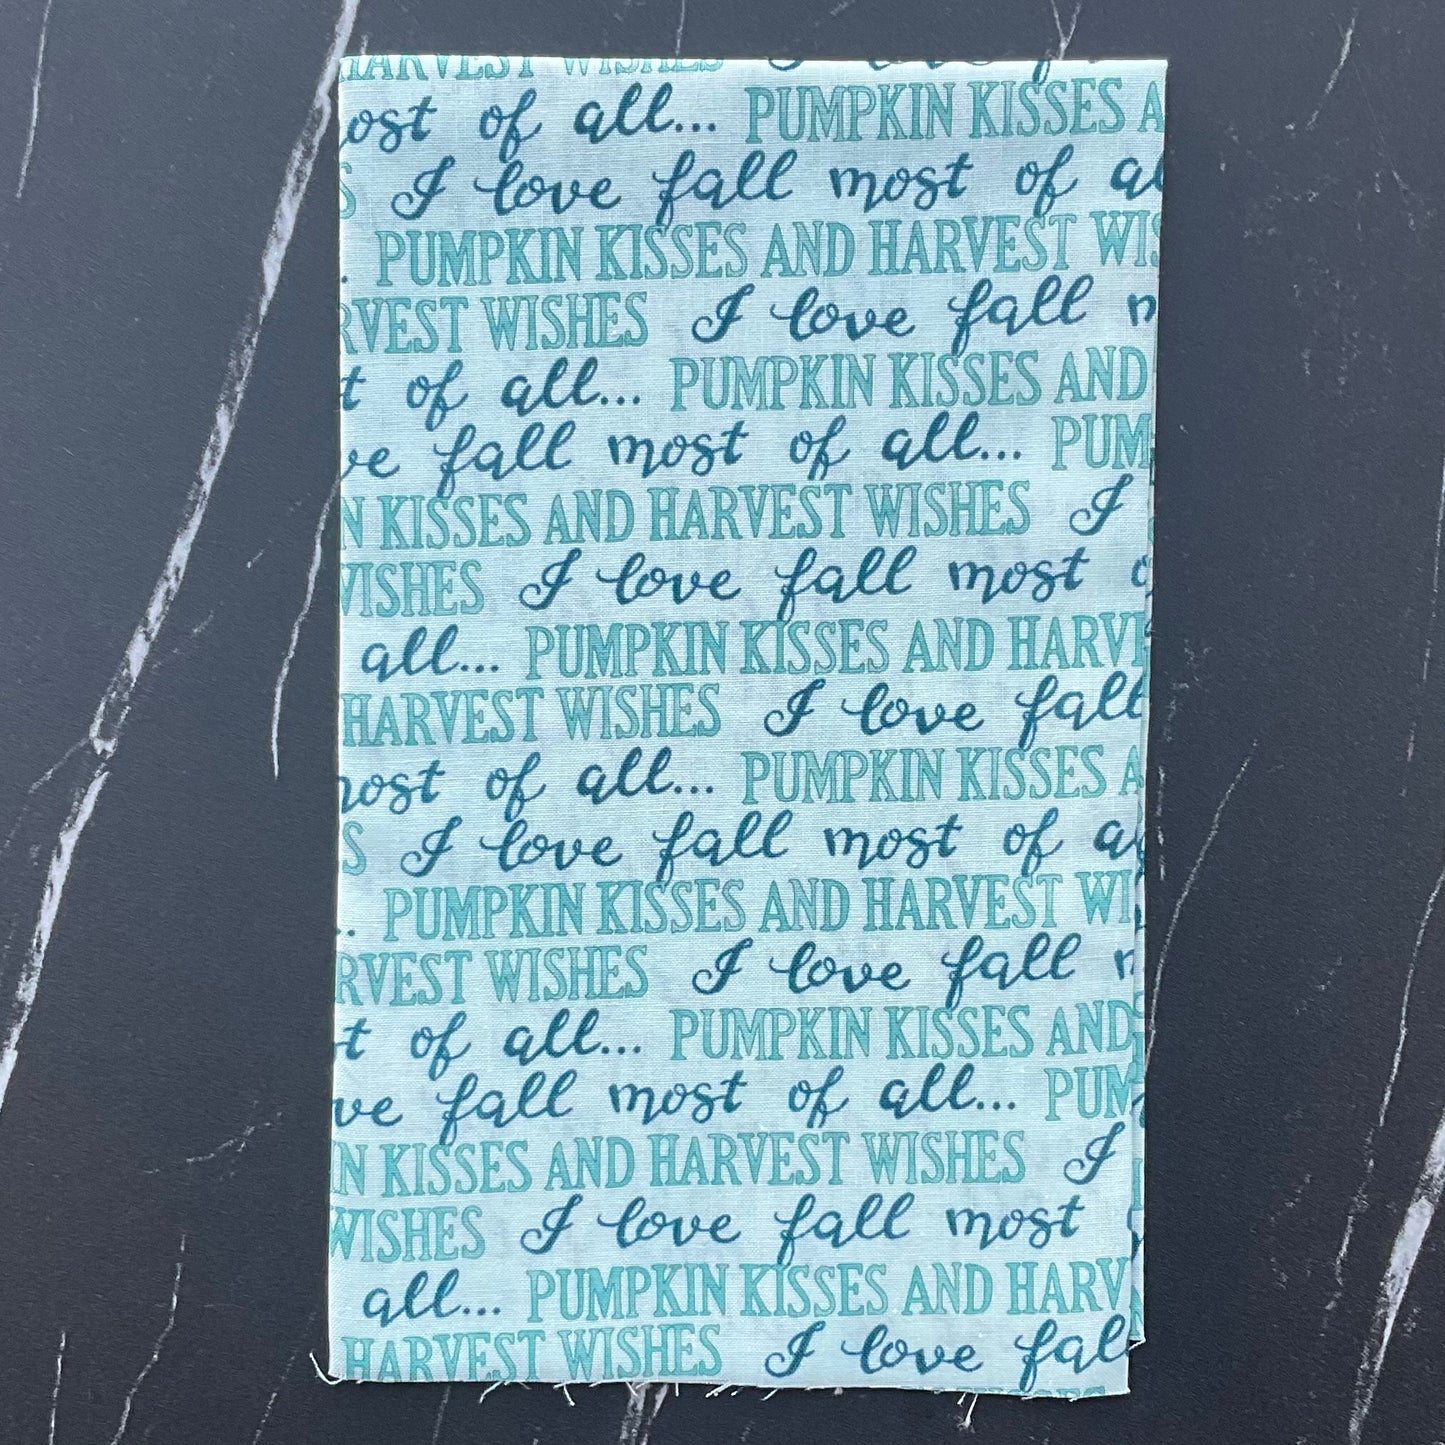 HARVEST WISHES I love f
ost of all... PUMPKIN KISSES A
S I love fall most of al
. PUMPKIN KISSES AND HARVEST WIS
RVEST WISHES I love fall m
t of all... PUMPKIN KISSES AND
ve fall most of all... PUM
N KISSES AND HARVEST WISHES I
WISHES I love fall most o
all... PUMPKIN KISSES AND HARVE
HARVEST WISHES I love fall
most of all... PUMPKIN KISSES A
S I love fall most of a
. PUMPKIN KISSES AND HARVEST WI
RVEST WISHES I love fall m
t of all... PUMPKIN KISSES AND
ve fall most of all... PUM
IN KISSES AND HARVEST WISHES I
WISHES I love fall most
all... PUMPKIN KISSES AND HARV
HARVEST WISHES I love fall